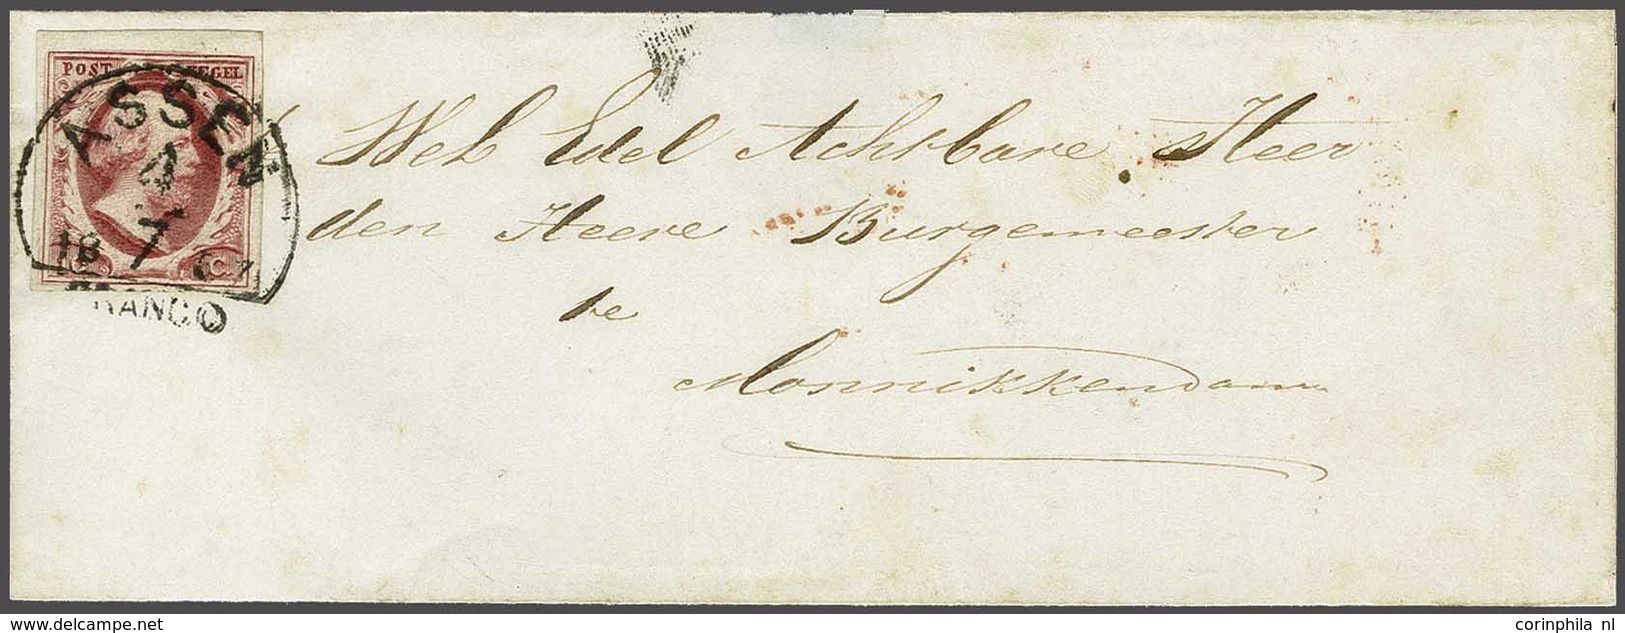 POST ZEGEL
ASSEN
4
7
18
C
RANCO
Wel Edel Achtbare Heer
den Heere Burgemeester
te
Monnikkendam
www.delcampe.net
corinphila nl